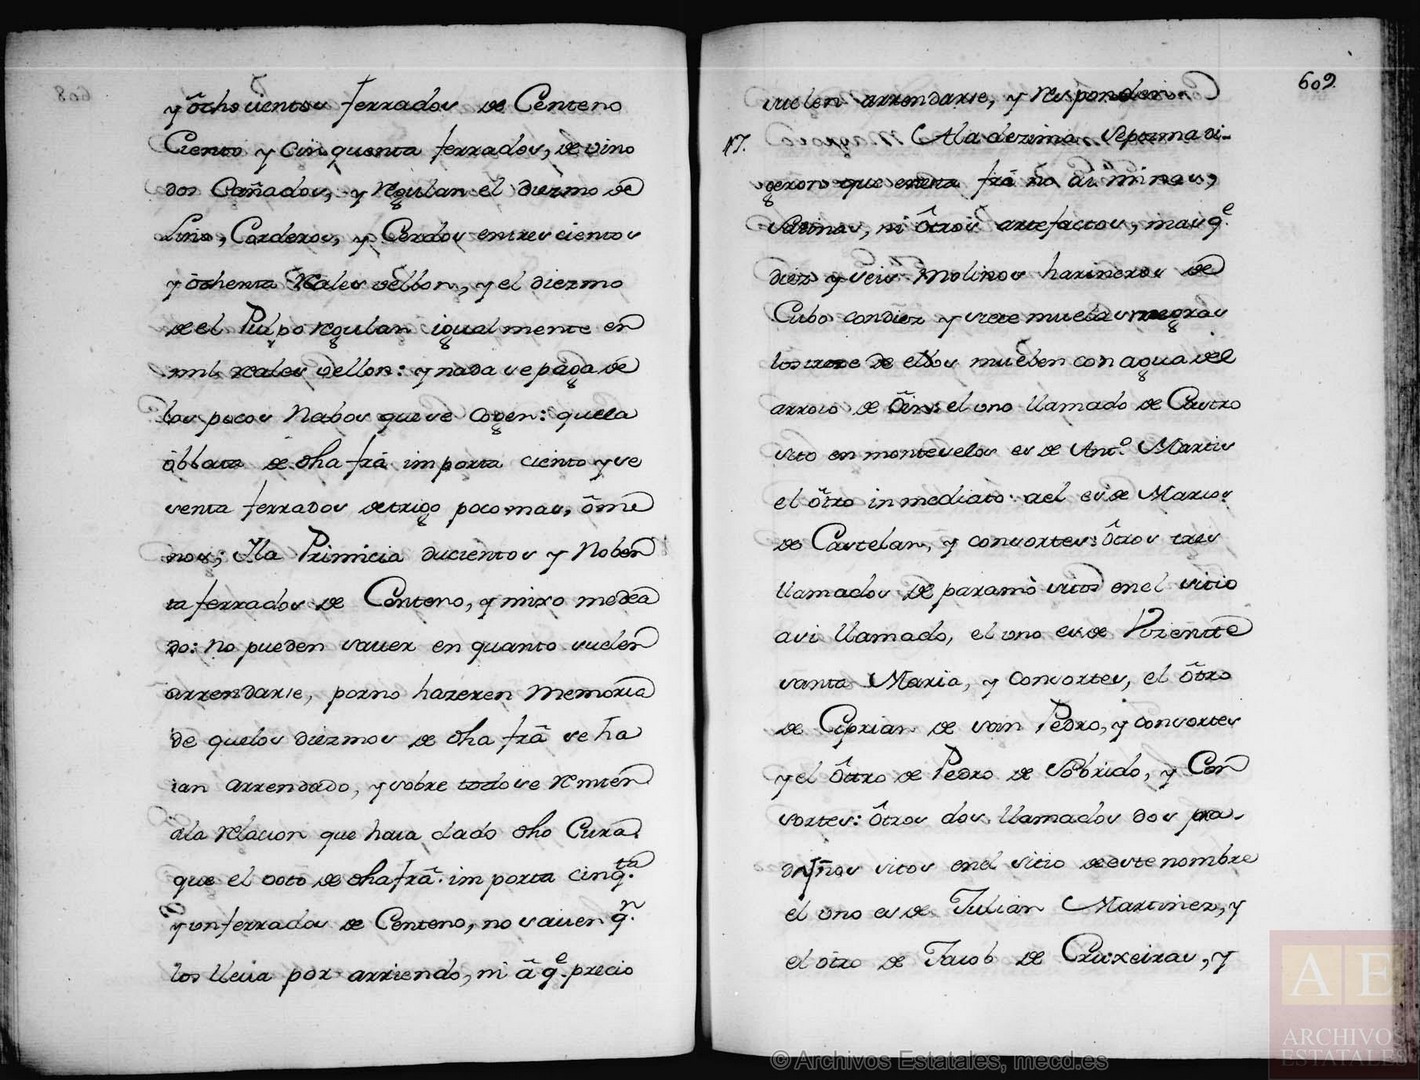 y ôchoçientos ferrados de Centeno
Ciento y cinquenta ferrados, de vino
dos Cañados, y Regulan el diezmo de
Lino, Corderos, y Cerdos entrescientos
y ôchenta Reales vellon, y el diezmo
de el Pulpo regulan igualmente en
mil reales vellon: y nada se paga de
los pocos Nabos que se Cogen: que la
ôblata de dha frâ importa ciento y se
senta ferrados de trigo poco mas, ô me
nos; Y la Primicia ducientos y Noben
ta ferrados de Centeno, y mixo media
do: no pueden sauer en quanto suelen
arrendarse, por no hazeren memoria
de que los diezmos de dha frâ se ha
ian arrendado, y sobre todo se Remiten
a la relacion que haia dado dho Cura.
que el voto de dha frâ. importa cinq.ta
y un ferrados de Centeno, no sauen q.n
los lleua por arriendo, ni â q.e precio
609.
suelen arrendarse, y Responden
17. A la dezima septima di-
geron que en esta frâ no ai minas,
salinas, ni ôtros artefactos, mas q.e
diez y seis Molinos harineros de
Cubo con diez y siete muelas negras
los trece de ellos mueben con agua del
arroio de el uno llamado de Castro
sito en monteselos es de Ant.o Martis
el ôtro inmediato a el es de Marcos
de Castelan, y consortes: ôtros tres
llamados de paramô sitos en el sitio
asi llamado, el uno es de Vizente
santa Maria, y Consortes, el ôtro
de Ciprian de san Pedro, y consortes
y el ôtro de Pedro de Sobrido, y Con
sortes: ôtros dos llamados dos pra-
diños sitos en el sitio de este nombre
el uno es de Julian Martinez, y
el ôtro de Jacob de Cruxeiras, y
AE
ARCHIVOS
ESTATALES
© Archivos Estatales, mecd.es